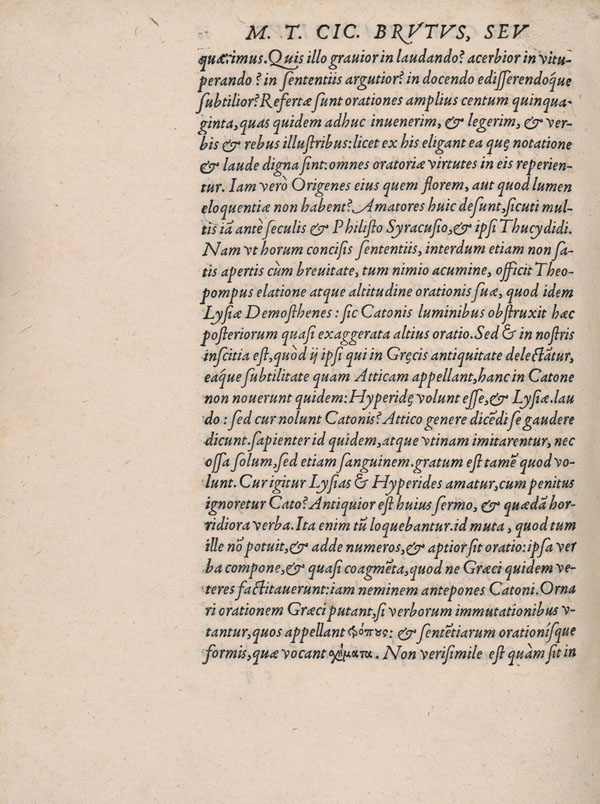 M. T. CIC. BRVTVS, SEV
quærimus. Quis illo grauior in laudando? acerbior in vitu-
perando? in ſententiis argutior? in docendo ediſſerendóque
ſubtilior? Refertæ ſunt orationes amplius centum quinqua-
ginta, quas quidem adhuc inuenerim, & legerim, & ver-
bis & rebus illuſtribus: licet ex his eligant ea quę notatione
& laude digna ſint: omnes oratoriæ virtutes in eis reperien-
tur. Iam verò Origenes eius quem florem, aut quod lumen
eloquentiæ non habent? Amatores huic deſunt, ſicuti mul-
tis iā antè ſeculis & Philiſto Syracuſio, & ipſi Thucydidi.
Nam vt horum conciſis ſententiis, interdum etiam non ſa-
tis apertis cùm breuitate, tum nimio acumine, officit Theo-
pompus elatione atque altitudine orationis ſuæ, quod idem
Lyſiæ Demoſthenes: ſic Catonis luminibus obſtruxit hæc
poſteriorum quaſi exaggerata altius oratio. Sed & in noſtris
inſcitia eſt, quòd ij ipſi qui in Gręcis antiquitate delectātur,
eáque ſubtilitate quam Atticam appellant, hanc in Catone
non nouerunt quidem: Hyperidę volunt eſſe, & Lyſiæ. lau
do: ſed cur nolunt Catonis? Attico genere dicēdi ſe gaudere
dicunt. ſapienter id quidem, atque vtinam imitarentur, nec
oſſa ſolum, ſed etiam ſanguinem. gratum eſt tamē quod vo-
lunt. Cur igitur Lyſias & Hyperides amatur, cum penitus
ignoretur Cato? Antiquior eſt huius ſermo, & quædā hor-
ridiora verba. Ita enim tū loquebantur. id muta, quod tum
ille nō potuit, & adde numeros, & aptior ſit oratio: ipſa ver
ba compone, & quaſi coagmēta, quod ne Græci quidem ve-
teres factitauerunt: iam neminem antepones Catoni. Orna
ri orationem Græci putant, ſi verborum immutationibus v-
tantur, quos appellant τρόπους: & ſentētiarum orationíſque
formis, quæ vocant σχήματα. Non veriſimile eſt quàm ſit in